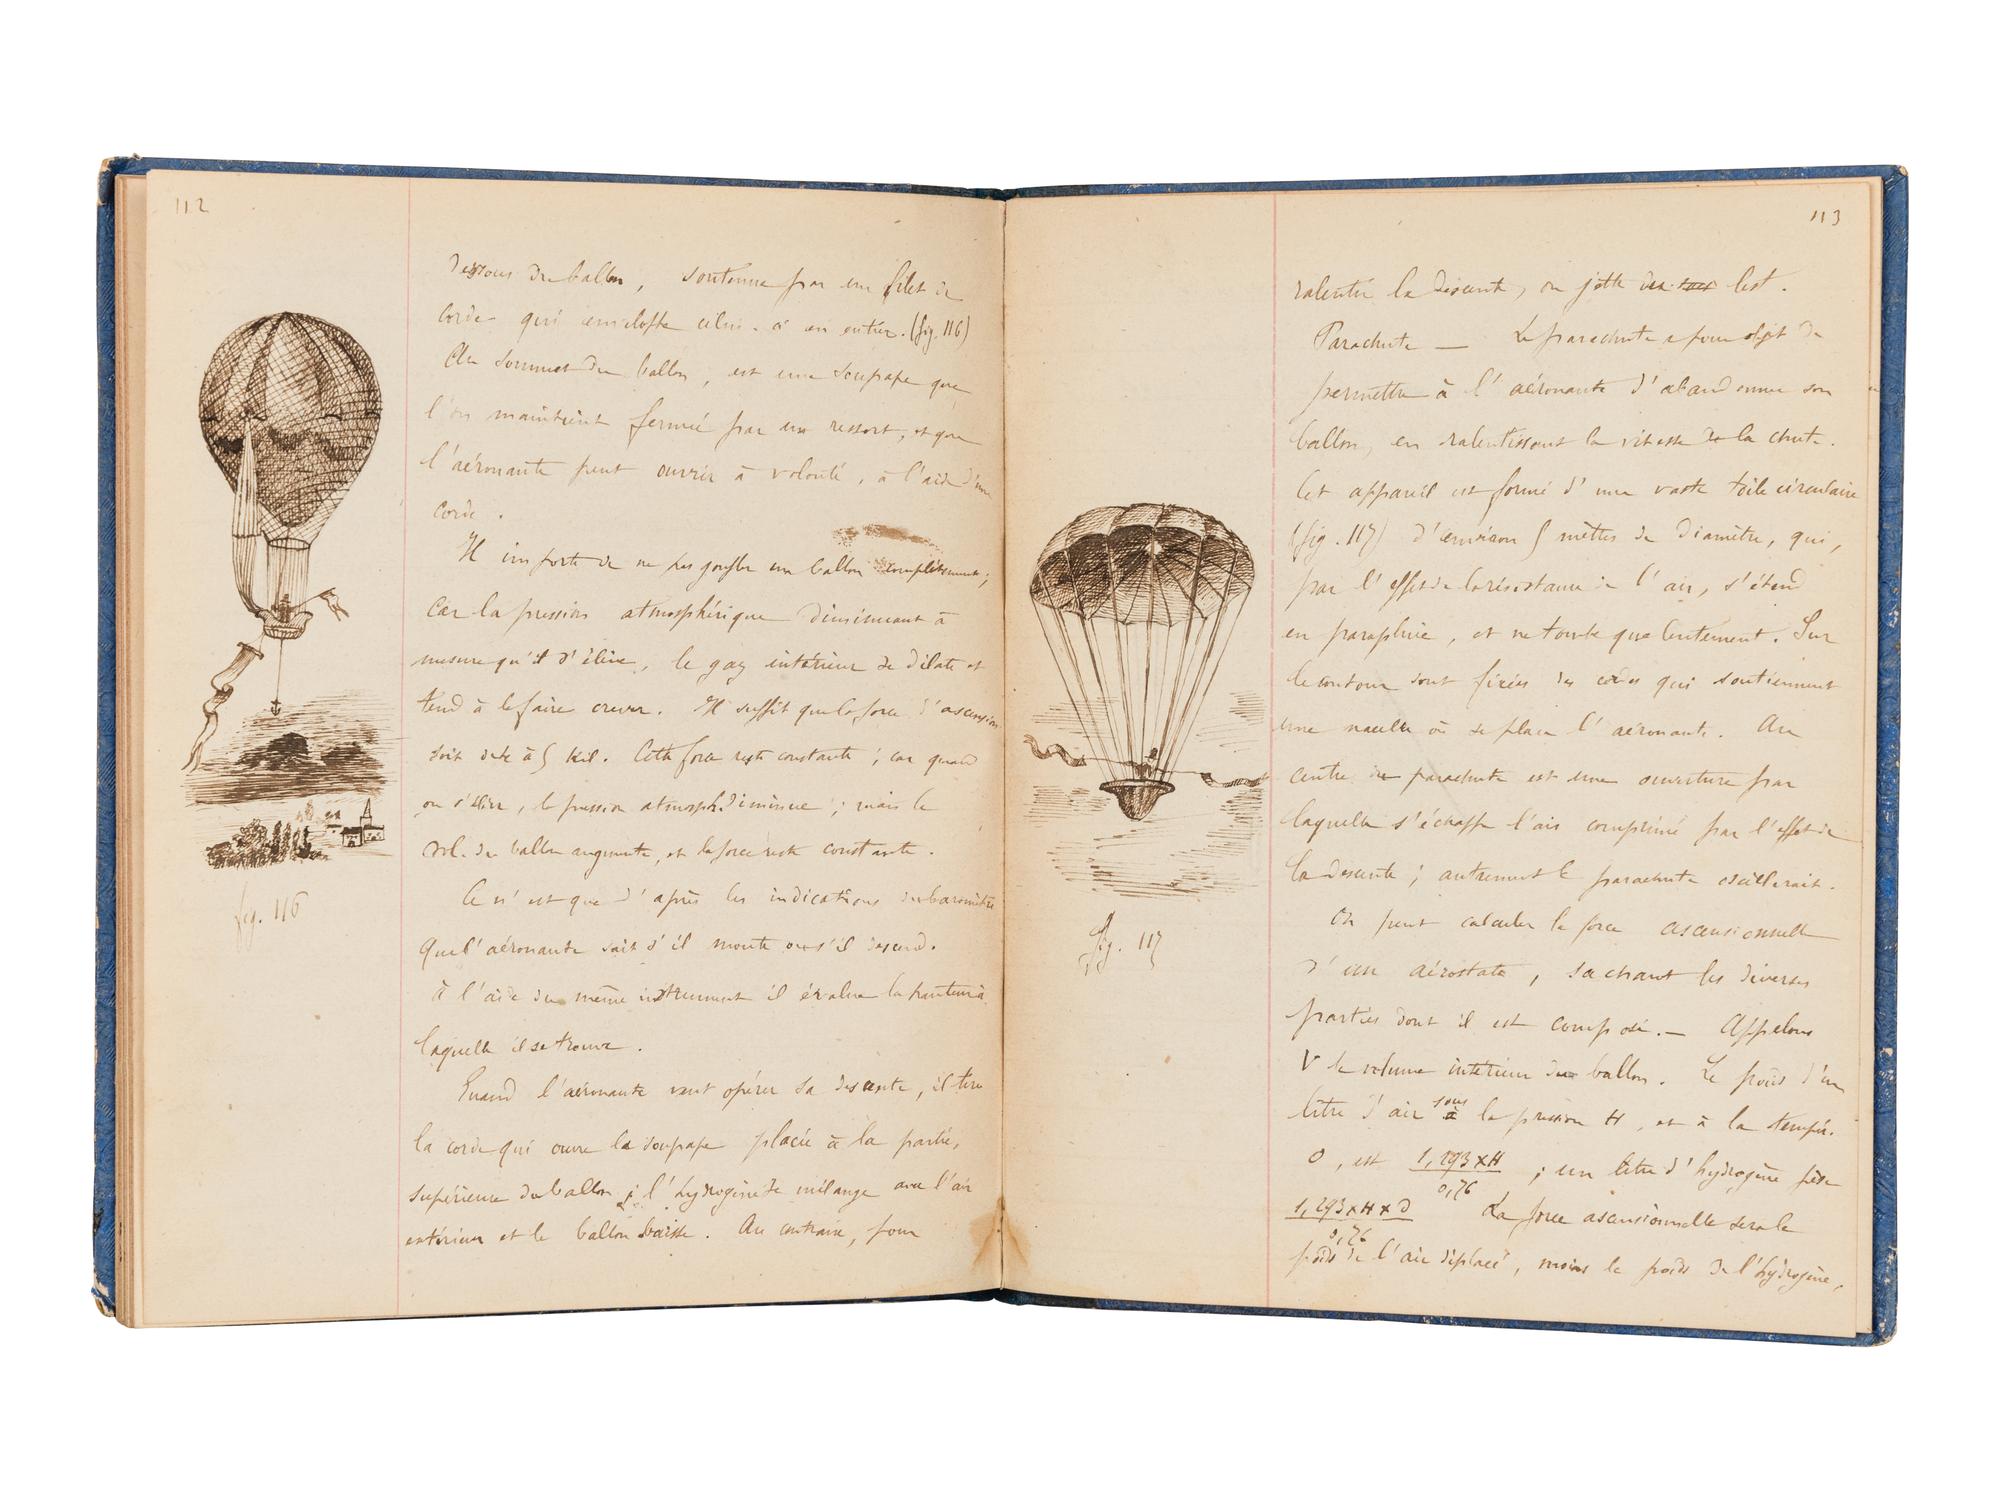 112
dessous du ballon, soutenue par un filet de
corde qui enveloppe celui-ci en entier. (fig. 116)
Au sommet du ballon, est une soupape que
l'on maintient fermée par un ressort, et que
l'aéronaute peut ouvrir à volonté, à l'aide d'une
corde.
Il importe de ne pas gonfler un ballon complètement;
car la pression atmosphérique diminuant à
mesure qu'il s'élève, le gaz intérieur se dilate et
tend à le faire crever. Il suffit que la force d'ascension
soit de 4 à 5 kil. Cette force reste constante; car quand
on s'élève, la pression atmosph. diminue; mais le
vol. du ballon augmente, et la force reste constante.
Ce n'est que d'après les indications du baromètre
que l'aéronaute sait s'il monte ou s'il descend.
À l'aide du même instrument il évalue la hauteur à
laquelle il se trouve.
Quand l'aéronaute veut opérer sa descente, il tire
la corde qui ouvre la soupape placée à la partie,
supérieure du ballon; l'hydrogène se mélange avec l'air
extérieur et le ballon baisse. Au contraire, pour
fig. 116
113
ralentir la descente, on jette du lest.
Parachute — Le parachute a pour objet de
permettre à l'aéronaute d'abandonner son
ballon, en ralentissant la vitesse de la chute.
Cet appareil est formé d'une vaste toile circulaire
(fig. 117) d'environ 5 mètres de diamètre, qui,
par l'effet de la résistance de l'air, s'étend
en parapluie, et ne tombe que lentement. Sur
le contour sont fixées des cordes qui soutiennent
une nacelle où se place l'aéronaute. Au
centre du parachute est une ouverture par
laquelle s'échappe l'air comprimé par l'effet de
la descente; autrement le parachute oscillerait.
On peut calculer la force ascensionnelle
d'un aérostate, sachant les diverses
parties dont il est composé. — Appelons
V le volume intérieur du ballon. Le poids d'un
litre d'air sous la pression H, et à la tempér.
0, est 1,293×H / 0,76 ; un litre d'hydrogène pèse
1,293×H×D / 0,76 La force ascensionnelle sera le
poids de l'air déplacé, moins le poids de l'hydrogène,
fig. 117